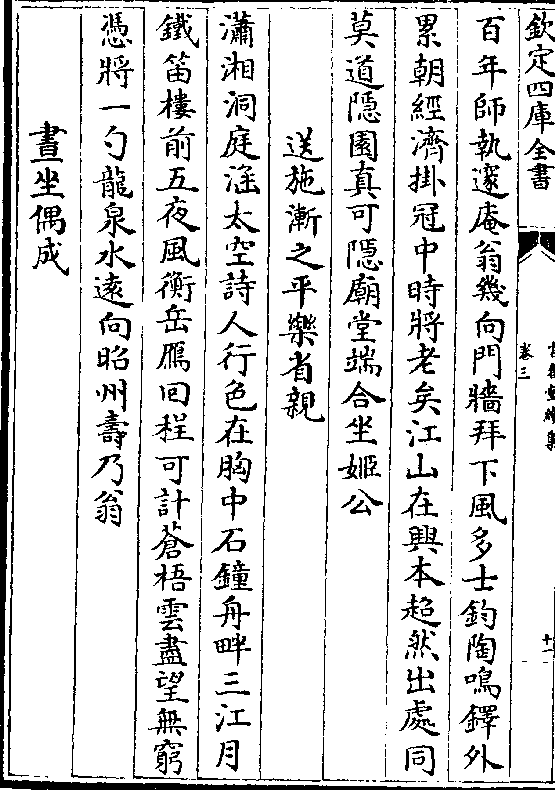 欽定四庫全書
卷三
百年師執邃庵翁幾向門牆拜下風多士鈞陶鳴鐸外
累朝經濟掛冠中時將老矣江山在興本超然出處同
莫道隱園真可隱廟堂端合坐姬公
送施漸之平樂省親
瀟湘洞庭涵太空詩人行色在胸中石鐘舟畔三江月
鐵笛樓前五夜風衡岳鴈回程可計蒼梧雲盡望無窮
憑將一勺龍泉水遠向昭州壽乃翁
晝坐偶成